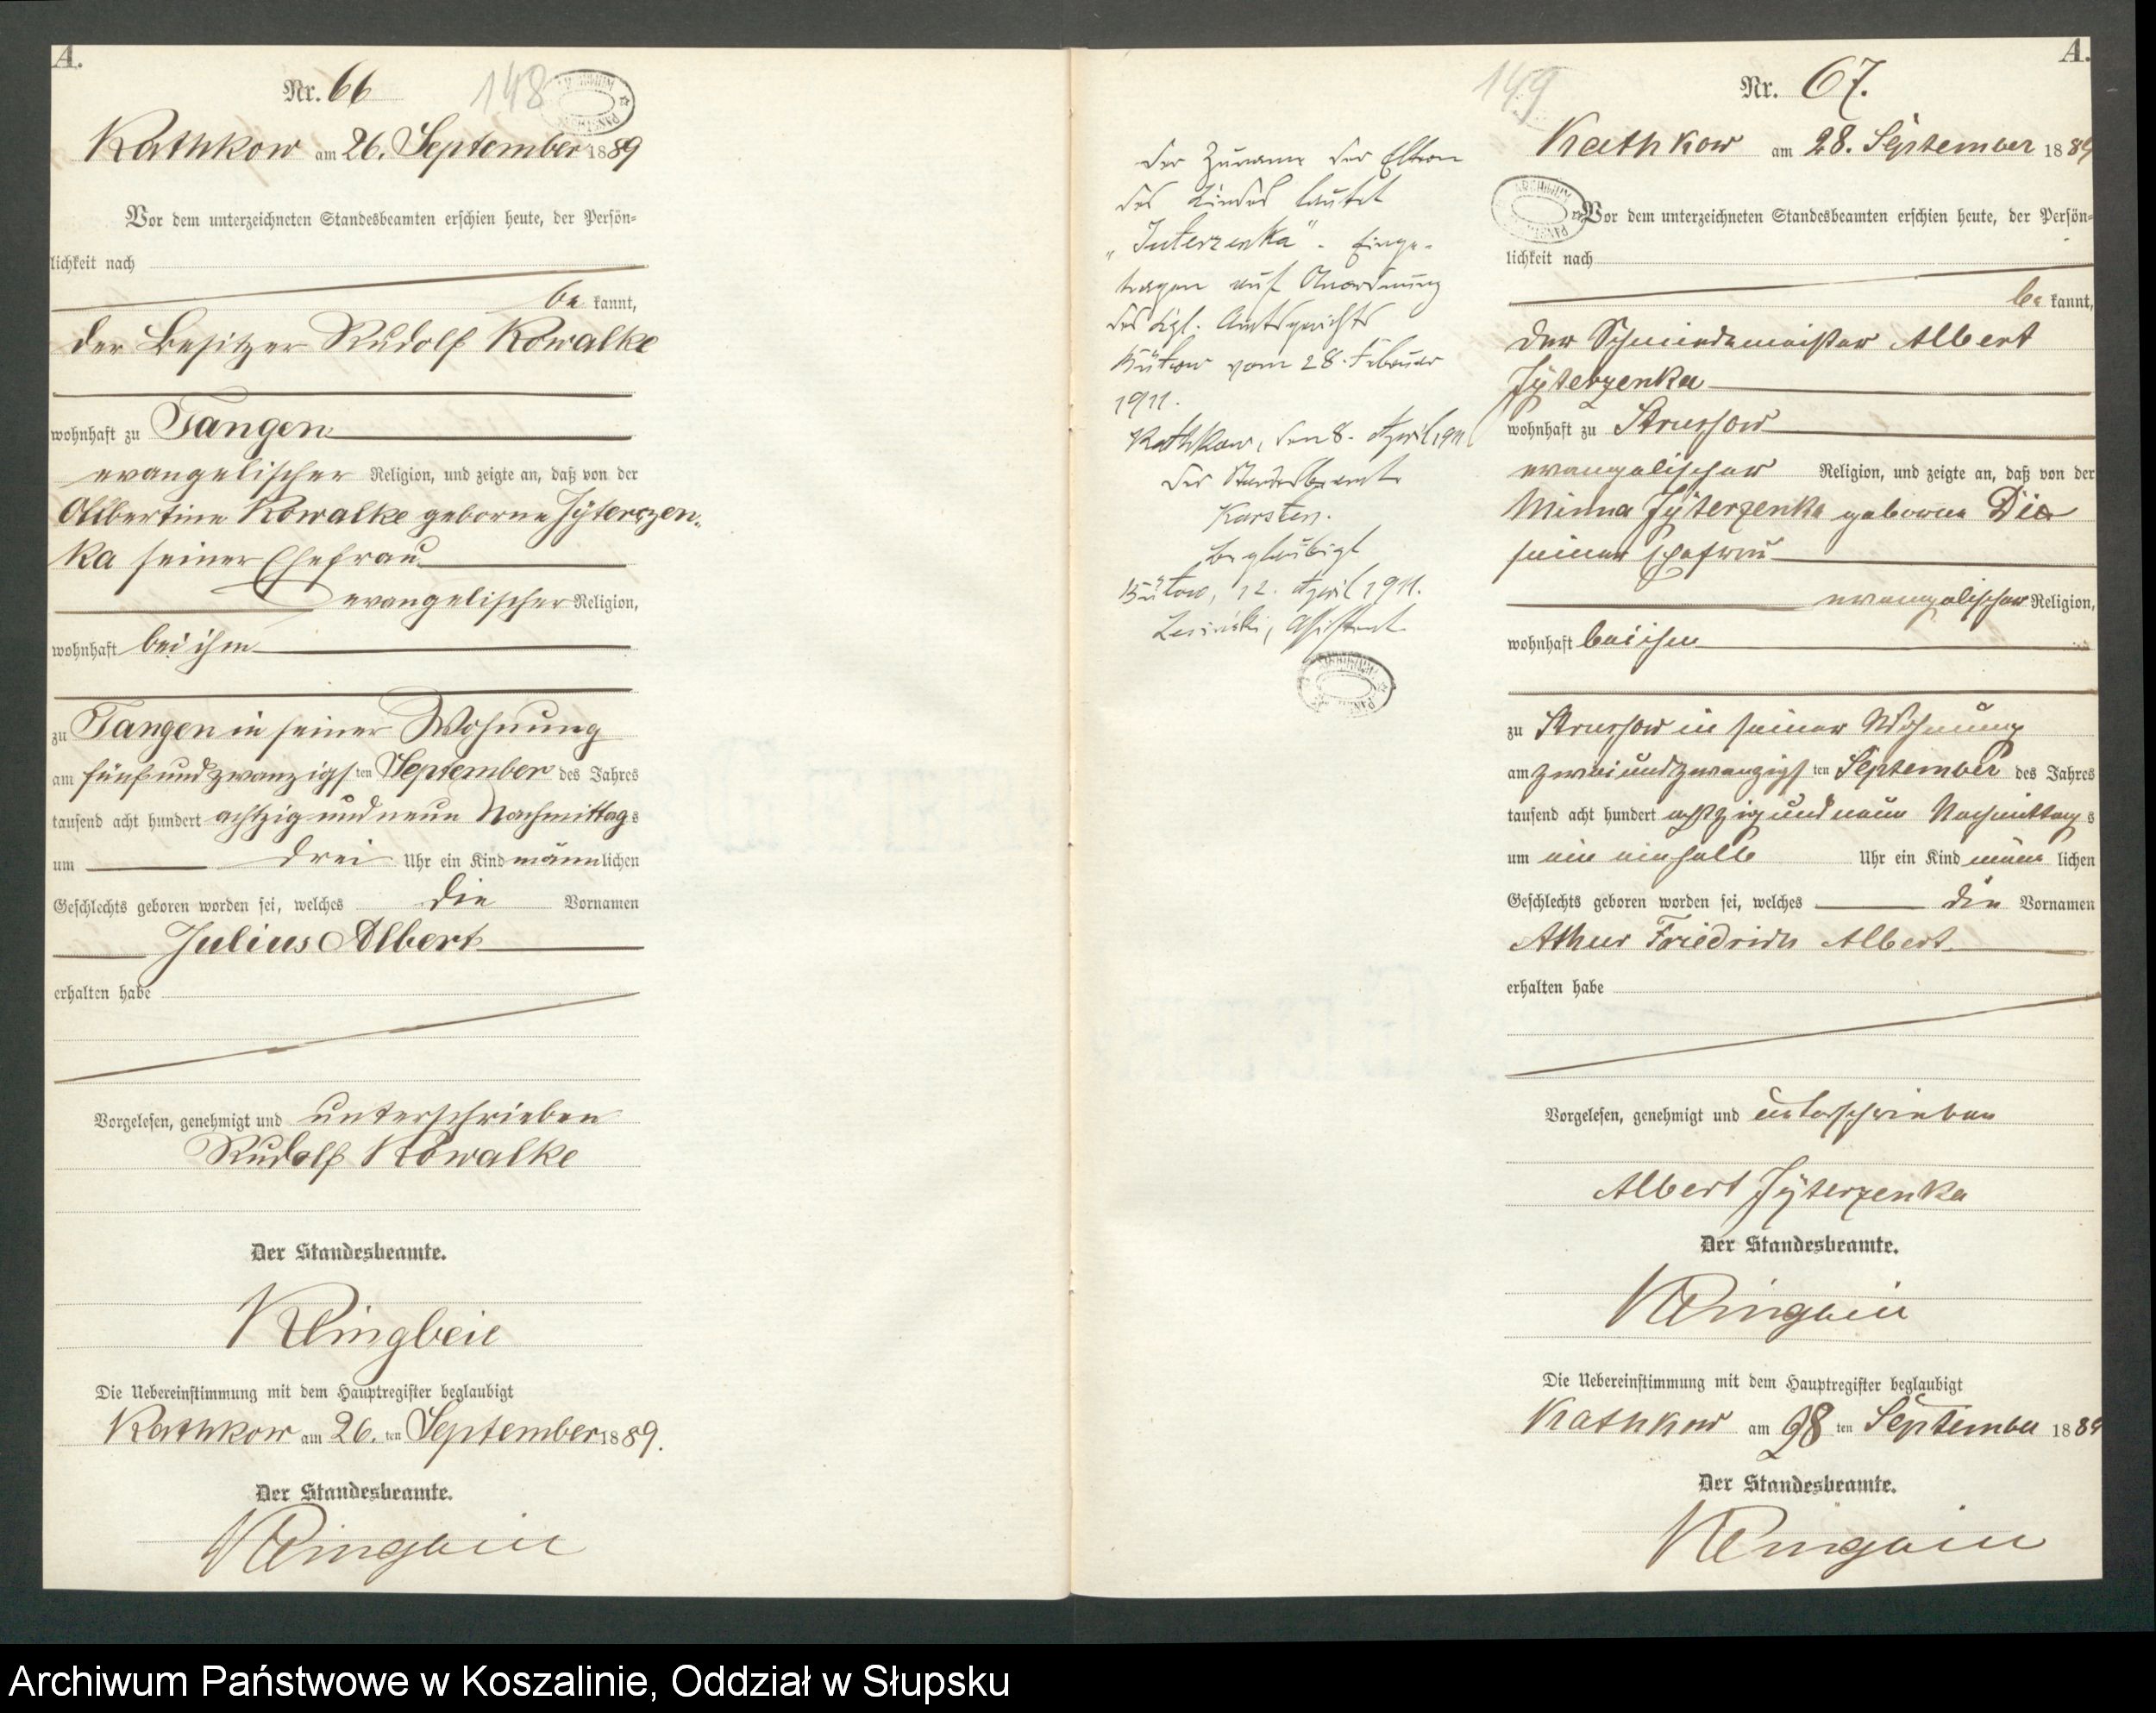 A.
Nr. 66
148
Kathkow am 26. September 1889
Vor dem unterzeichneten Standesbeamten erschien heute, der Persön-
lichkeit nach
be kannt,
der Besitzer Rudolf Kowalke
wohnhaft zu Tangen
evangelischer Religion, und zeigte an, daß von der
Albertine Kowalke geborne Jÿterzen-
ka seiner Ehefrau
evangelischer Religion,
wohnhaft bei ihm
zu Tangen in seiner Wohnung
am fünfundzwanzigsten September des Jahres
tausend acht hundert achtzig und neun Nachmittags
um drei Uhr ein Kind männlichen
Geschlechts geboren worden sei, welches die Vornamen
Julius Albert
erhalten habe
Vorgelesen, genehmigt und unterschrieben
Rudolf Kowalke
Der Standesbeamte.
Klingbeil
Die Uebereinstimmung mit dem Hauptregister beglaubigt
Kathkow am 26. ten September 1889.
Der Standesbeamte.
Klingbeil
149
Der Zuname der Eltern
des Kindes lautet
„Juterzenka". Einge-
tragen auf Anordnung
des Kgl. Amtsgerichts
Bütow vom 28. Februar
1911.
Kathkow, den 8. April 1911
Der Standesbeamte
Karsten.
Beglaubigt
Bütow, 12. April 1911.
Assistent
A.
Nr. 67.
Kathkow am 28. September 1889
Vor dem unterzeichneten Standesbeamten erschien heute, der Persön-
lichkeit nach
be kannt,
der Schmiedemeister Albert
Jÿterzenka
wohnhaft zu Strussow
evangelischer Religion, und zeigte an, daß von der
Minna Jÿterzenka geborne
seiner Ehefrau
evangelischer Religion,
wohnhaft bei ihm
zu Strussow in seiner Wohnung
am zweiundzwanzigsten September des Jahres
tausend acht hundert achtzig und neun Nachmittags
um ein einhalb Uhr ein Kind männlichen
Geschlechts geboren worden sei, welches die Vornamen
Athur Friedrich Albert
erhalten habe
Vorgelesen, genehmigt und unterschrieben
Albert Jÿterzenka
Der Standesbeamte.
Klingbeil
Die Uebereinstimmung mit dem Hauptregister beglaubigt
Kathkow am 28 ten September 1889
Der Standesbeamte.
Klingbeil
Archiwum Państwowe w Koszalinie, Oddział w Słupsku